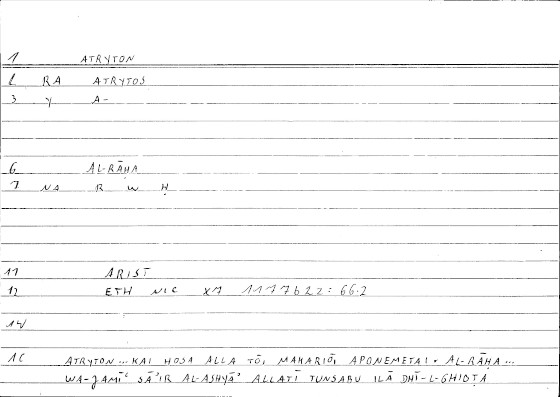 1 ATRYTON
2 RA ATRYTOS
3 Y A-
6 AL-RĀḤA
7 NA R W Ḥ
11 ARIST
12 ETH NIC X7 1177b22: 66.2
14
16 ATRYTON ... KAI HOSA ALLA TŌI MAKARIŌI APONEMETAI • AL-RĀḤA ...
WA-JAMĪʿ SĀʾIR AL-ASHYĀʾ ALLATĪ TUNSABU ILĀ DHĪ-L-GHIBṬA